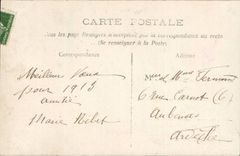 CARTE POSTALE
Tous les pays étrangers n'acceptent pas la correspondance au recto
se renseigner à la Poste
Correspondance
Meilleurs Vœux
pour 1913
amitié
Marie
Mme
6 rue Carnot (6)
Aubenas
Ardèche